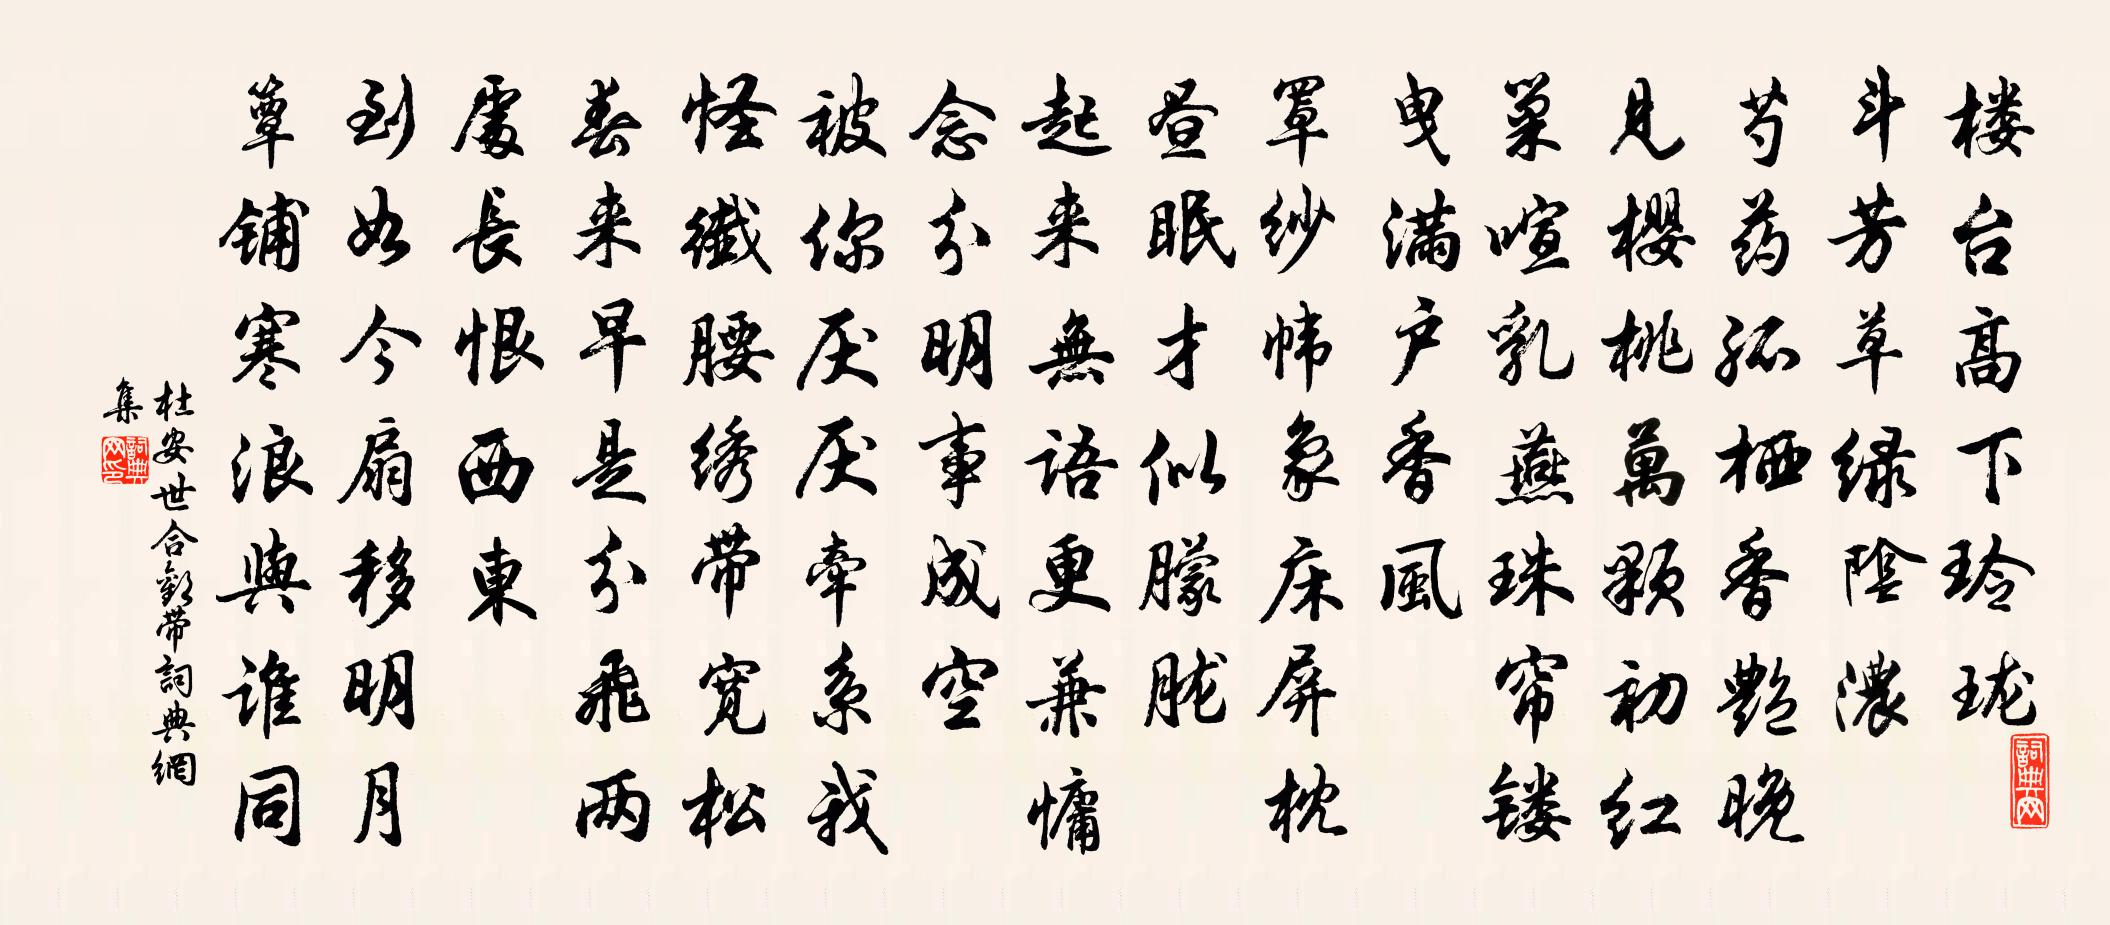 楼台高下玲珑
斗芳草绿陰濃
芍药孤栖香艷晚
見櫻桃萬顆初红
巢喧乳燕珠帘镂
曳满户香風
罩纱帏象床屏枕
昼眠才似朦胧
起来無语更兼慵
念分明事成空
被你厌厌牵系我
怪纖腰绣带宽松
春来早是分飛两
處長恨西東
到如今扇移明月
簟铺寒浪與谁同
杜安世合歡带詞典網
集
詞典网
詞典网印